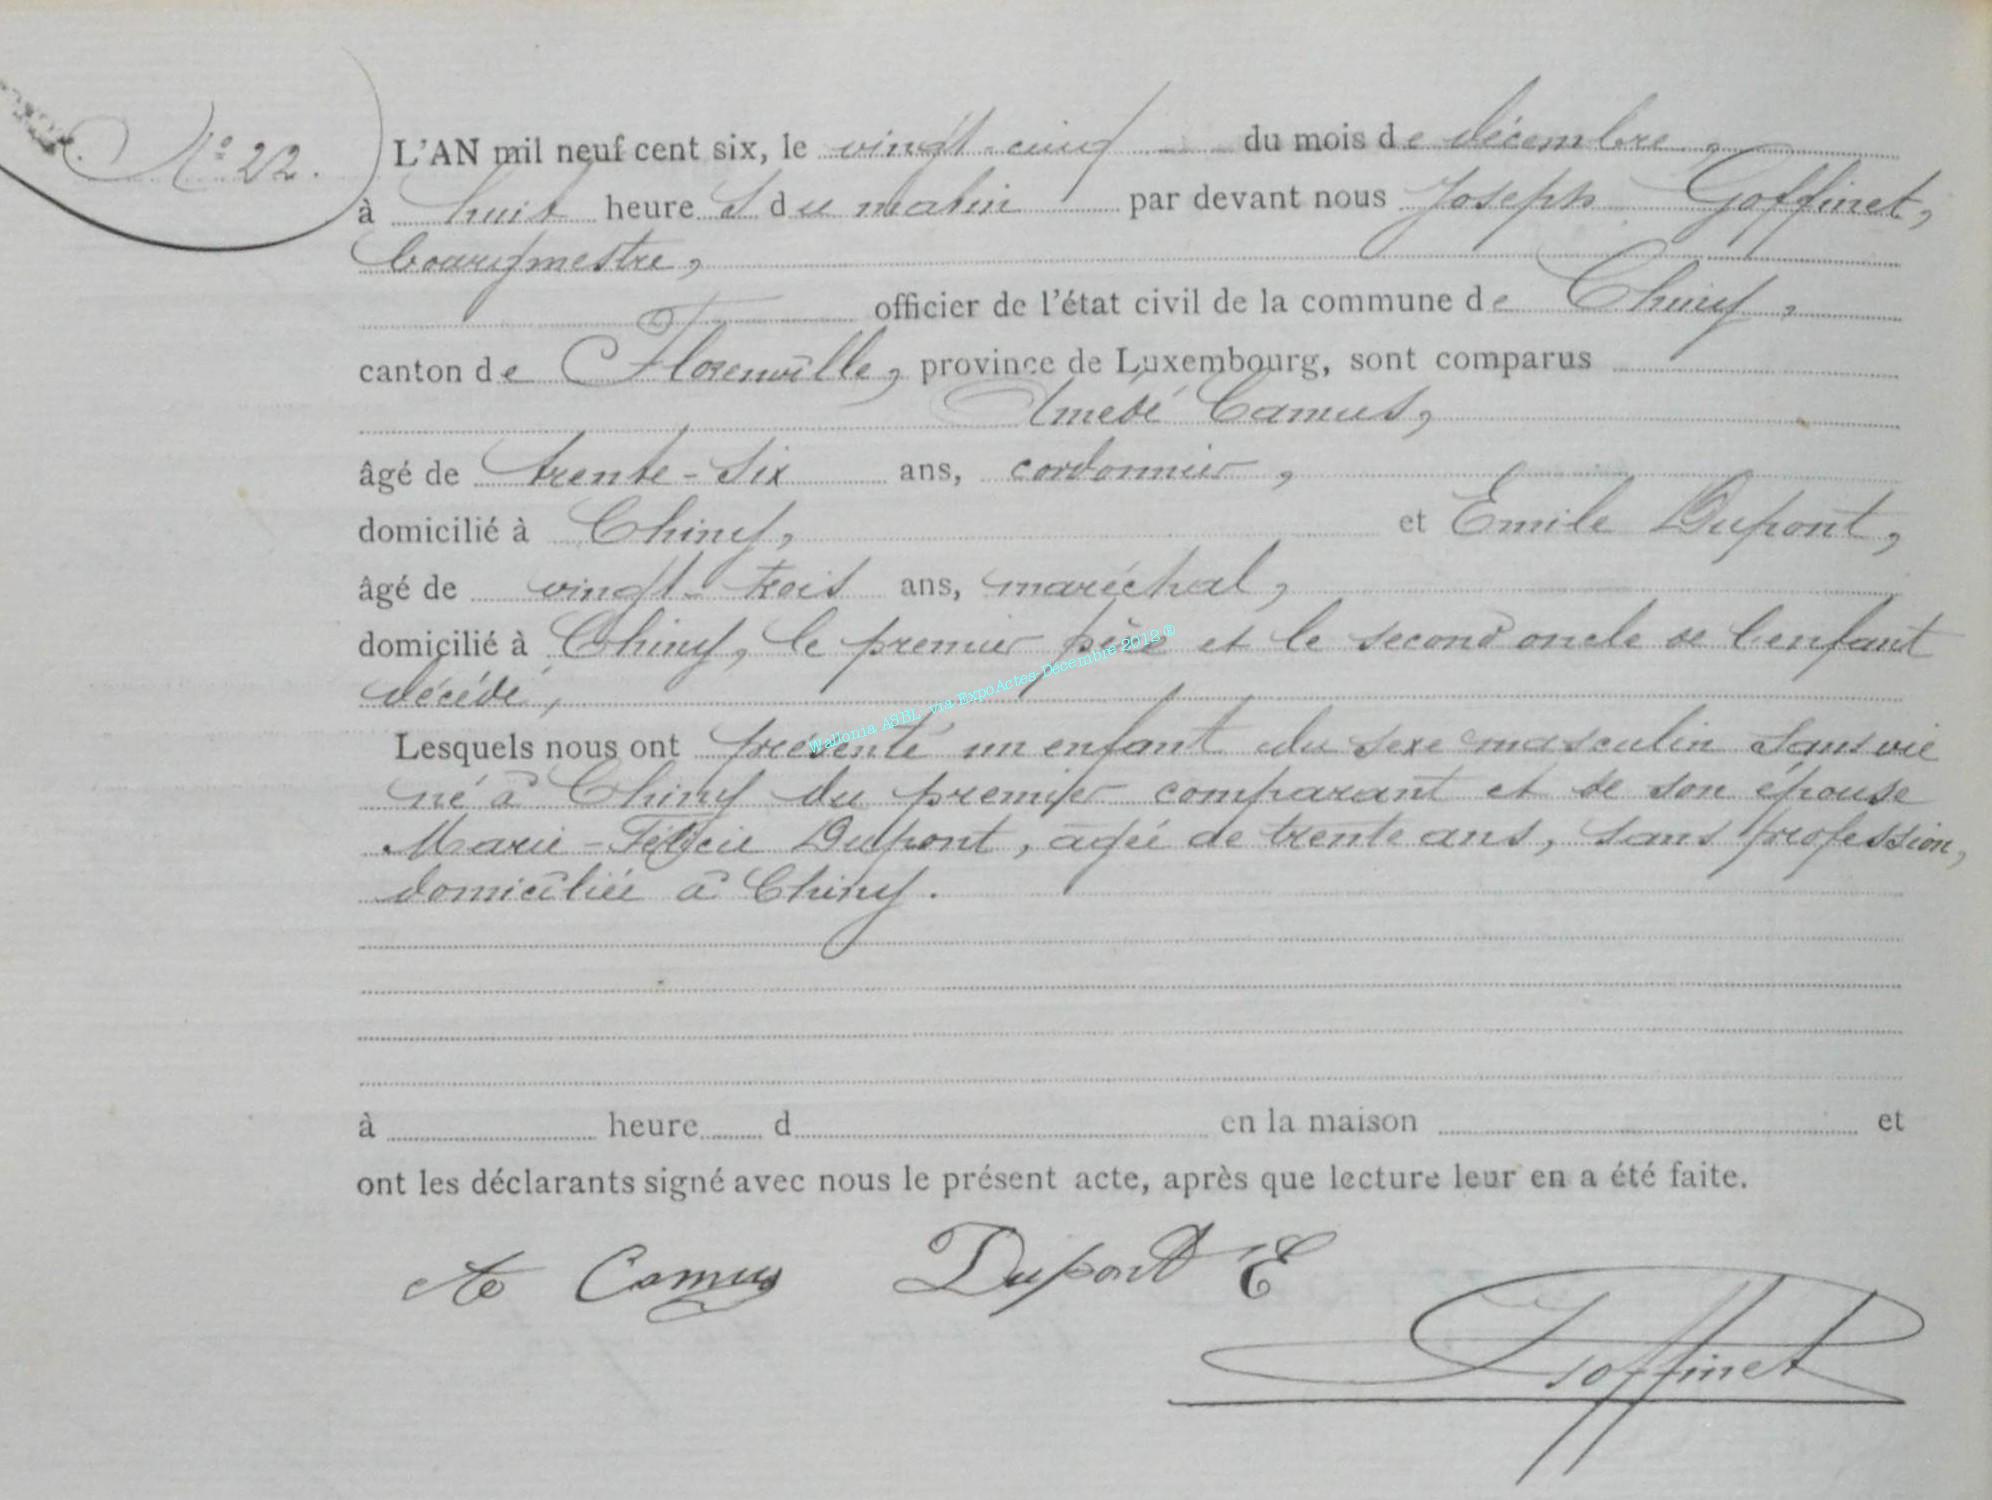 N° 22.
L'AN mil neuf cent six, le vingt-cinq du mois de décembre,
à huit heures du matin par devant nous Joseph Goffinet,
bourgmestre,
officier de l'état civil de la commune de Chiny,
canton de Florenville, province de Luxembourg, sont comparus
Amedé Camus,
âgé de trente-six ans, cordonnier,
domicilié à Chiny, et Emile Dupont,
âgé de vingt-trois ans, maréchal,
domicilié à Chiny, le premier père et le second oncle de l'enfant
décédé,
Lesquels nous ont présenté un enfant du sexe masculin sans vie
né à Chiny du premier comparant et de son épouse
Marie-Félicie Dupont, agée de trente ans, sans profession,
domiciliée à Chiny.
à heure d en la maison et
ont les déclarants signé avec nous le présent acte, après que lecture leur en a été faite.
Camus Dupont E
Goffinet
Wallonia ASBL via ExpoActes-Décembre 2012 ®